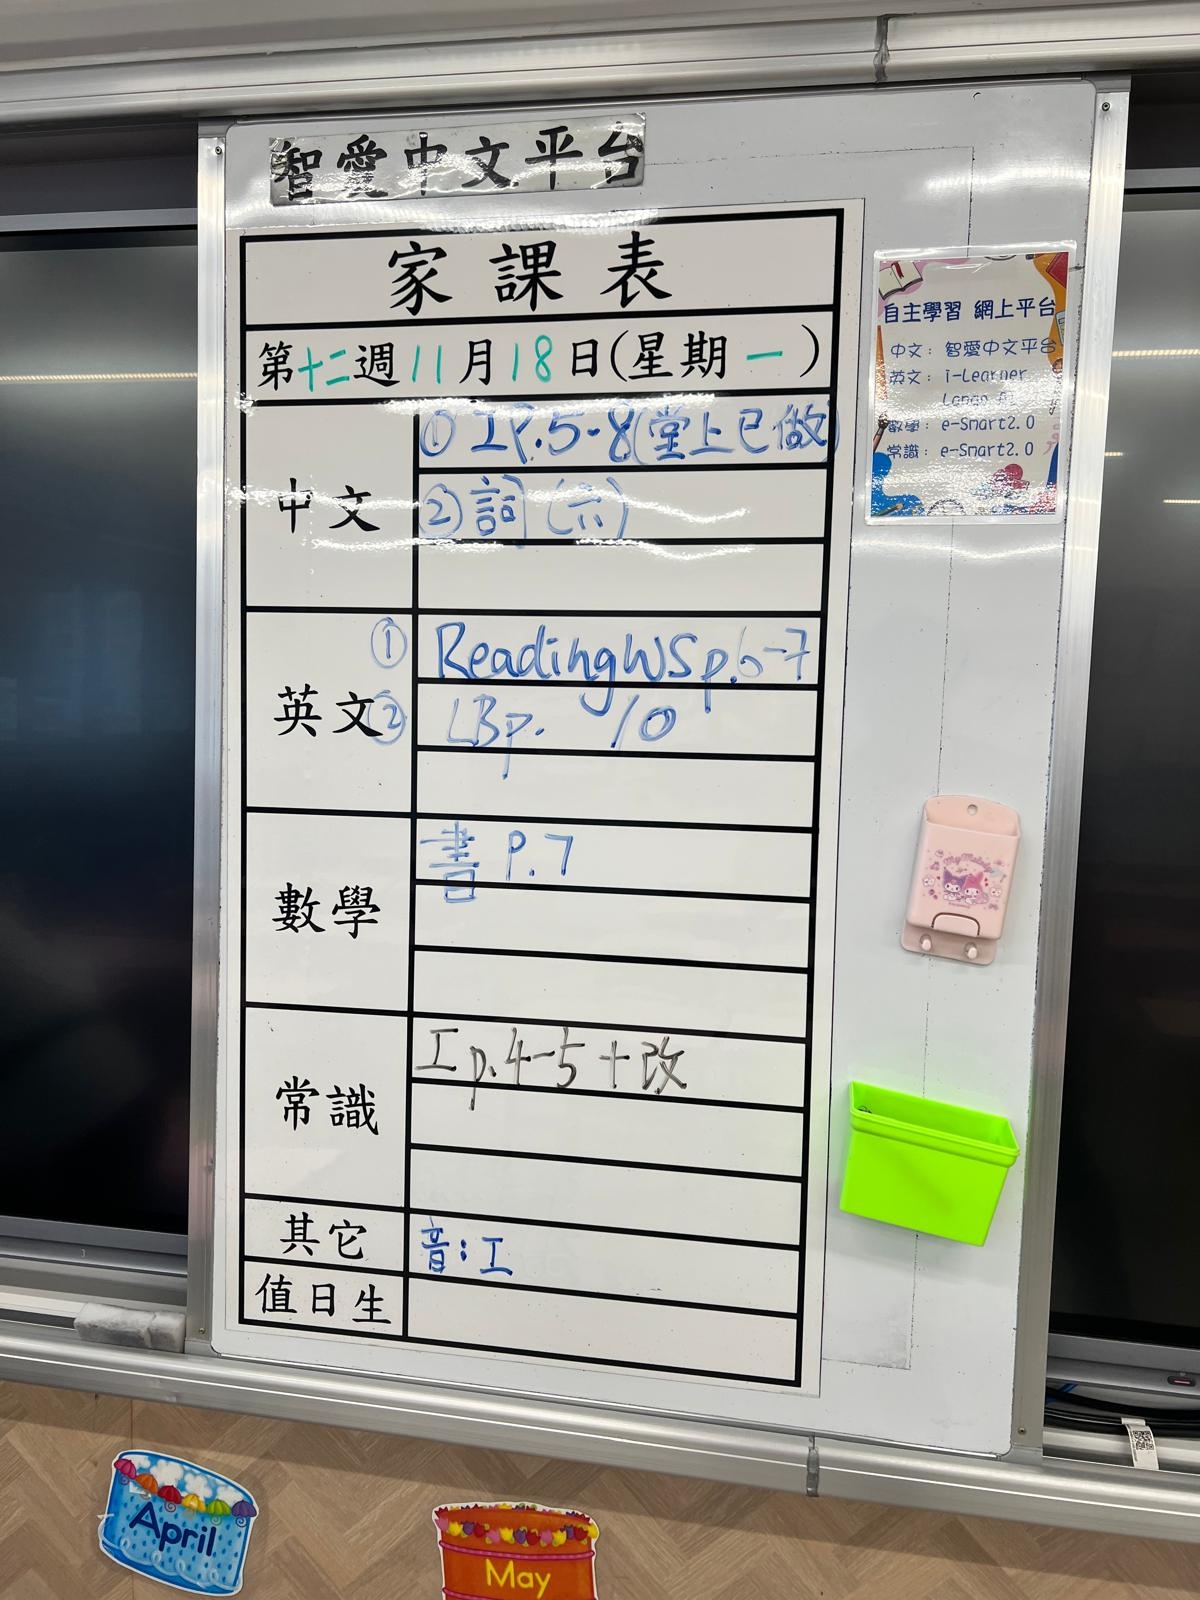 智愛中文平台
家課表
第十二週11月18日(星期一)
中文
① 工P.5-8(堂上已做)
② 詞(六)
英文
① Reading WS p.6-7
② LB p. 10
數學
書 P.7
常識
工 p.4-5+改
其它
音:工
值日生
自主學習 網上平台
中文: 智愛中文平台
英文: i-Learner
數學: e-Smart2.0
常識: e-Smart2.0
My Melody
April
May